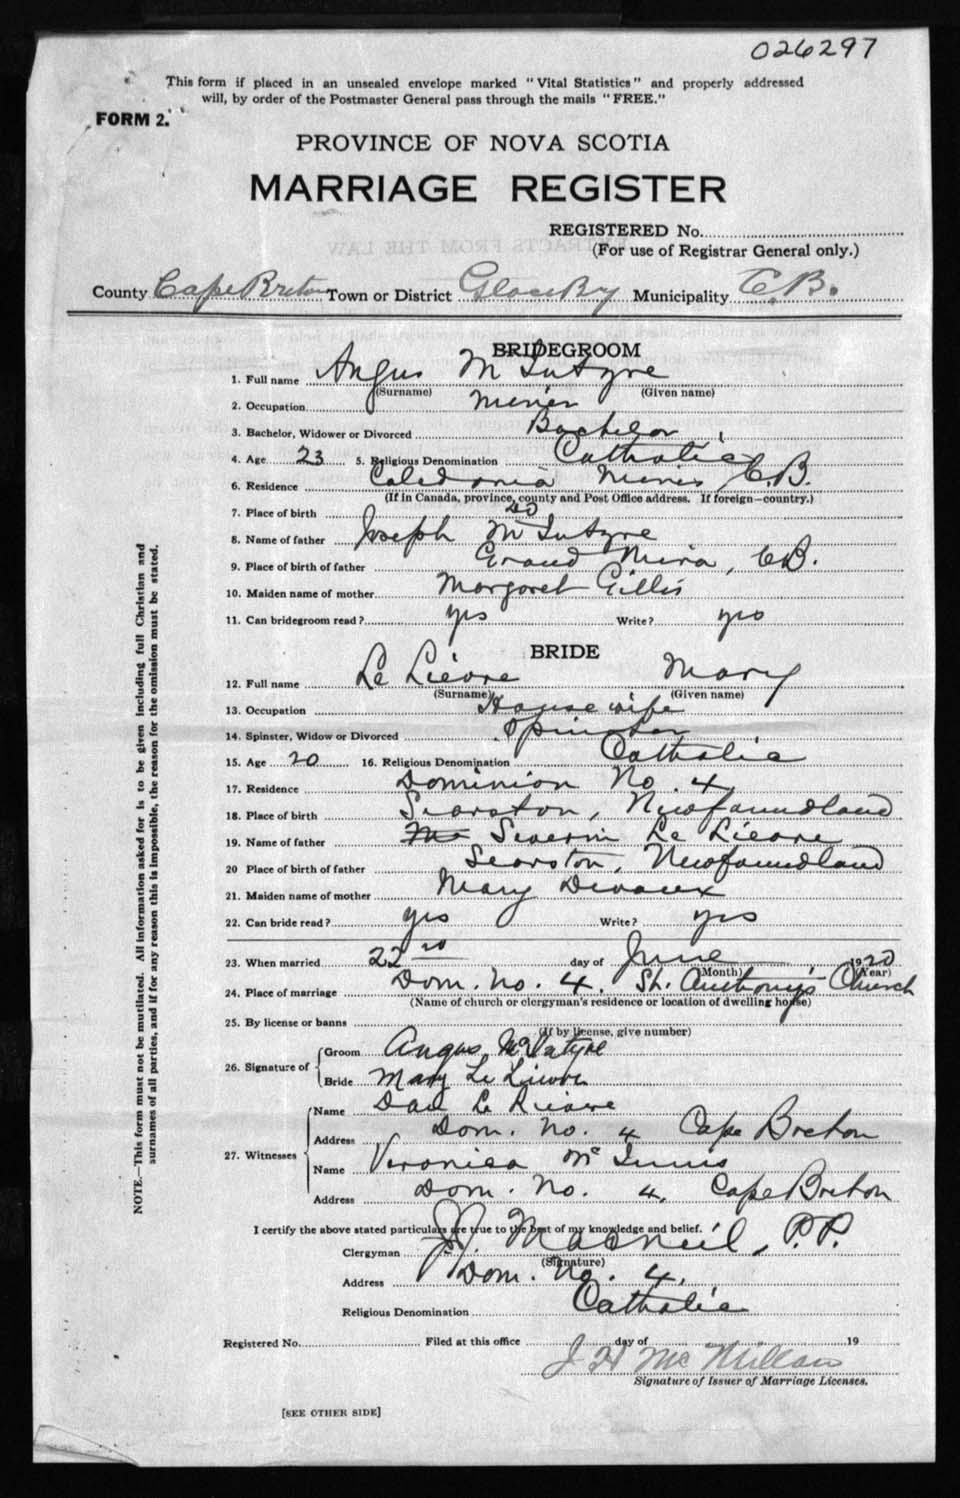 026297
This form if placed in an unsealed envelope marked "Vital Statistics" and properly addressed
will, by order of the Postmaster General pass through the mails "FREE."
FORM 2.
PROVINCE OF NOVA SCOTIA
MARRIAGE REGISTER
REGISTERED No.
(For use of Registrar General only.)
County Cape Breton Town or District Glace By Municipality C.B.
BRIDEGROOM
1. Full name Angus McIntyre
(Surname) (Given name)
2. Occupation miner
3. Bachelor, Widower or Divorced Bachelor
4. Age 23 5. Religious Denomination Catholic
6. Residence Caledonia Mines C.B.
(If in Canada, province, county and Post Office address. If foreign—country.)
7. Place of birth do
8. Name of father Joseph McIntyre
9. Place of birth of father Grand Mira, CB.
10. Maiden name of mother Margaret Gillis
11. Can bridegroom read? yes Write? yes
BRIDE
12. Full name Le Lievre Mary
(Surname) (Given name)
13. Occupation Housewife
14. Spinster, Widow or Divorced Spinster
15. Age 20 16. Religious Denomination Catholic
17. Residence Dominion No. 4
18. Place of birth Searston, Newfoundland
19. Name of father Severin Le Lievre
20 Place of birth of father Searston, Newfoundland
21. Maiden name of mother Mary Devaux
22. Can bride read? yes Write? yes
23. When married 22nd day of June 1920
(Month) (Year)
24. Place of marriage Dom. No. 4. St. Anthony's Church
(Name of church or clergyman's residence or location of dwelling house)
25. By license or banns
(If by license, give number)
26. Signature of Groom Angus McIntyre
Bride Mary Le Lievre
27. Witnesses Name Dan Le Rievre
Address Dom. No. 4 Cape Breton
Name Veronica McInnis
Address Dom. No. 4, Cape Breton
I certify the above stated particulars are true to the best of my knowledge and belief.
Clergyman J.J. MacNeil, P.P.
(Signature)
Address Dom. No. 4.
Religious Denomination Catholic
Registered No. Filed at this office day of 19
J H McMillan
Signature of Issuer of Marriage Licenses.
[SEE OTHER SIDE]
NOTE.—This form must not be mutilated. All information asked for is to be given including full Christian and
surnames of all parties, and if for any reason this is impossible, the reason for the omission must be stated.